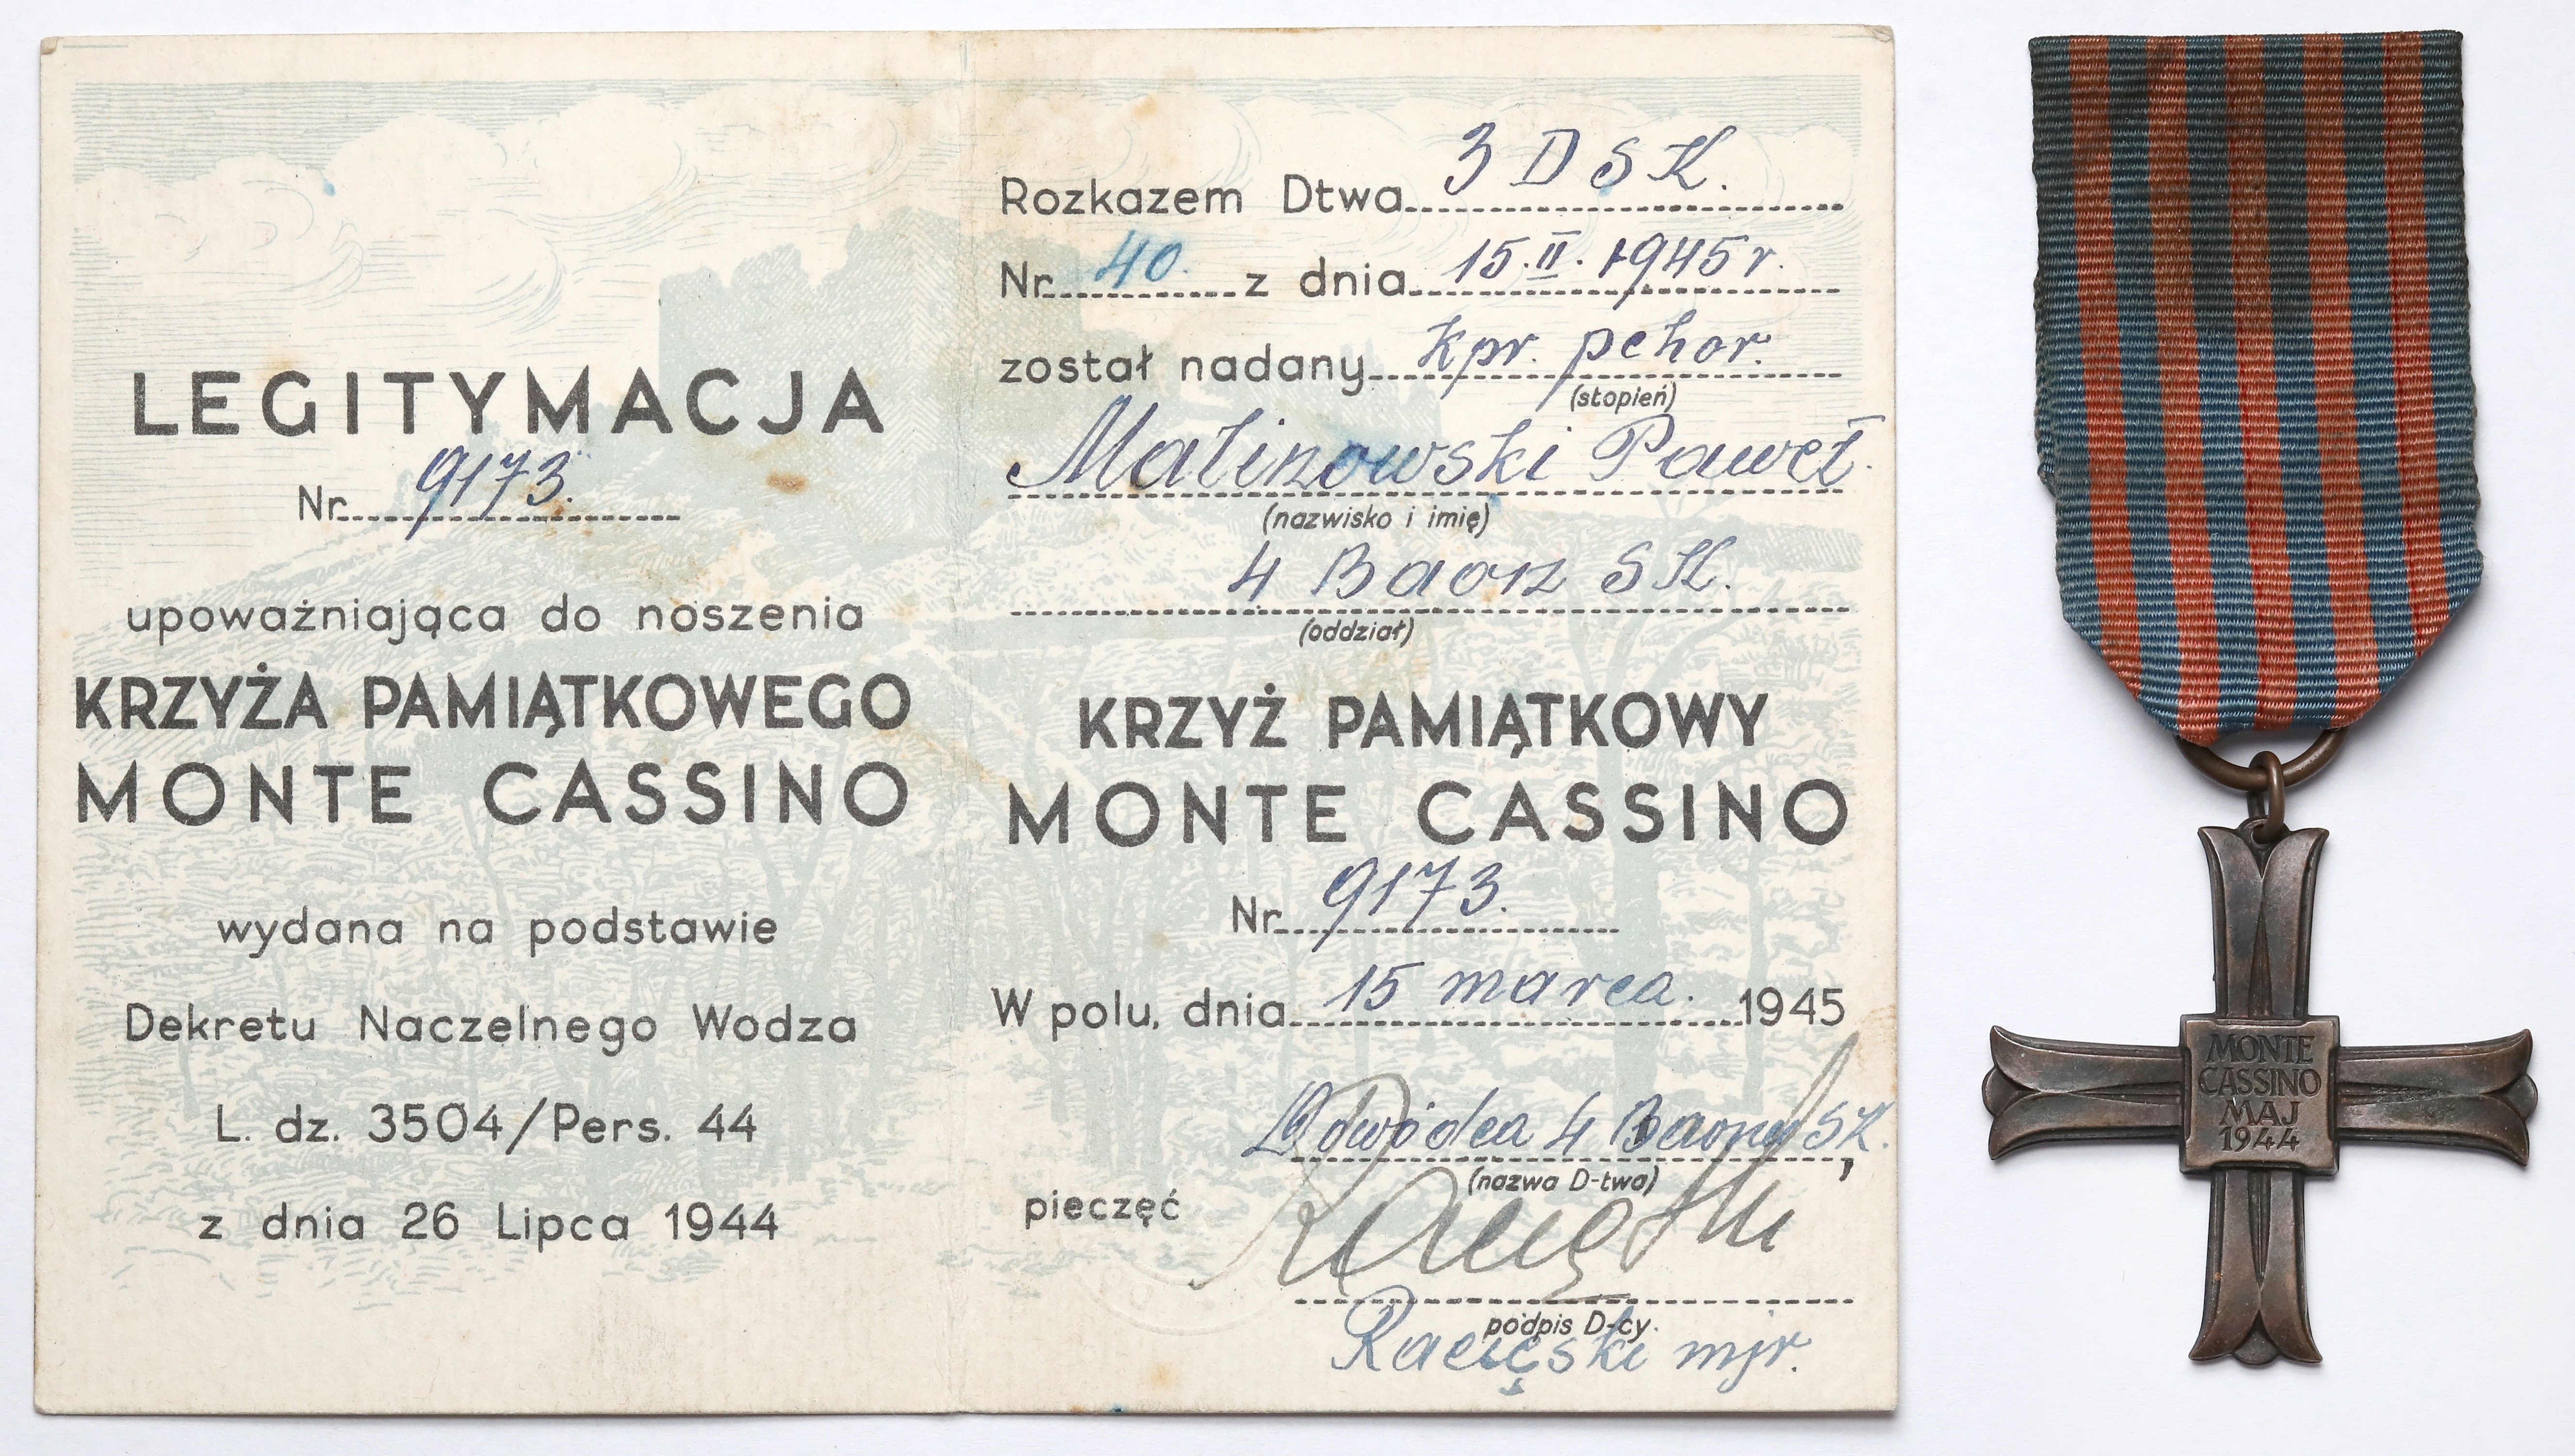 LEGITYMACJA
Nr 9173.
upoważniająca do noszenia
KRZYŻA PAMIĄTKOWEGO
MONTE CASSINO
wydana na podstawie
Dekretu Naczelnego Wodza
L. dz. 3504/Pers. 44
z dnia 26 Lipca 1944
Rozkazem Dtwa 3 D S K.
Nr 40. z dnia 15.II.1945 r.
został nadany kpr. pchor.
(stopień)
Malinowski Paweł.
(nazwisko i imię)
4 Baon SK.
(oddział)
KRZYŻ PAMIĄTKOWY
MONTE CASSINO
Nr 9173.
W polu, dnia 15 marca. 1945
Dowódca 4 Baonu SK.
(nazwa D-twa)
pieczęć
podpis D-cy.
mjr.
MONTE
CASSINO
MAJ
1944